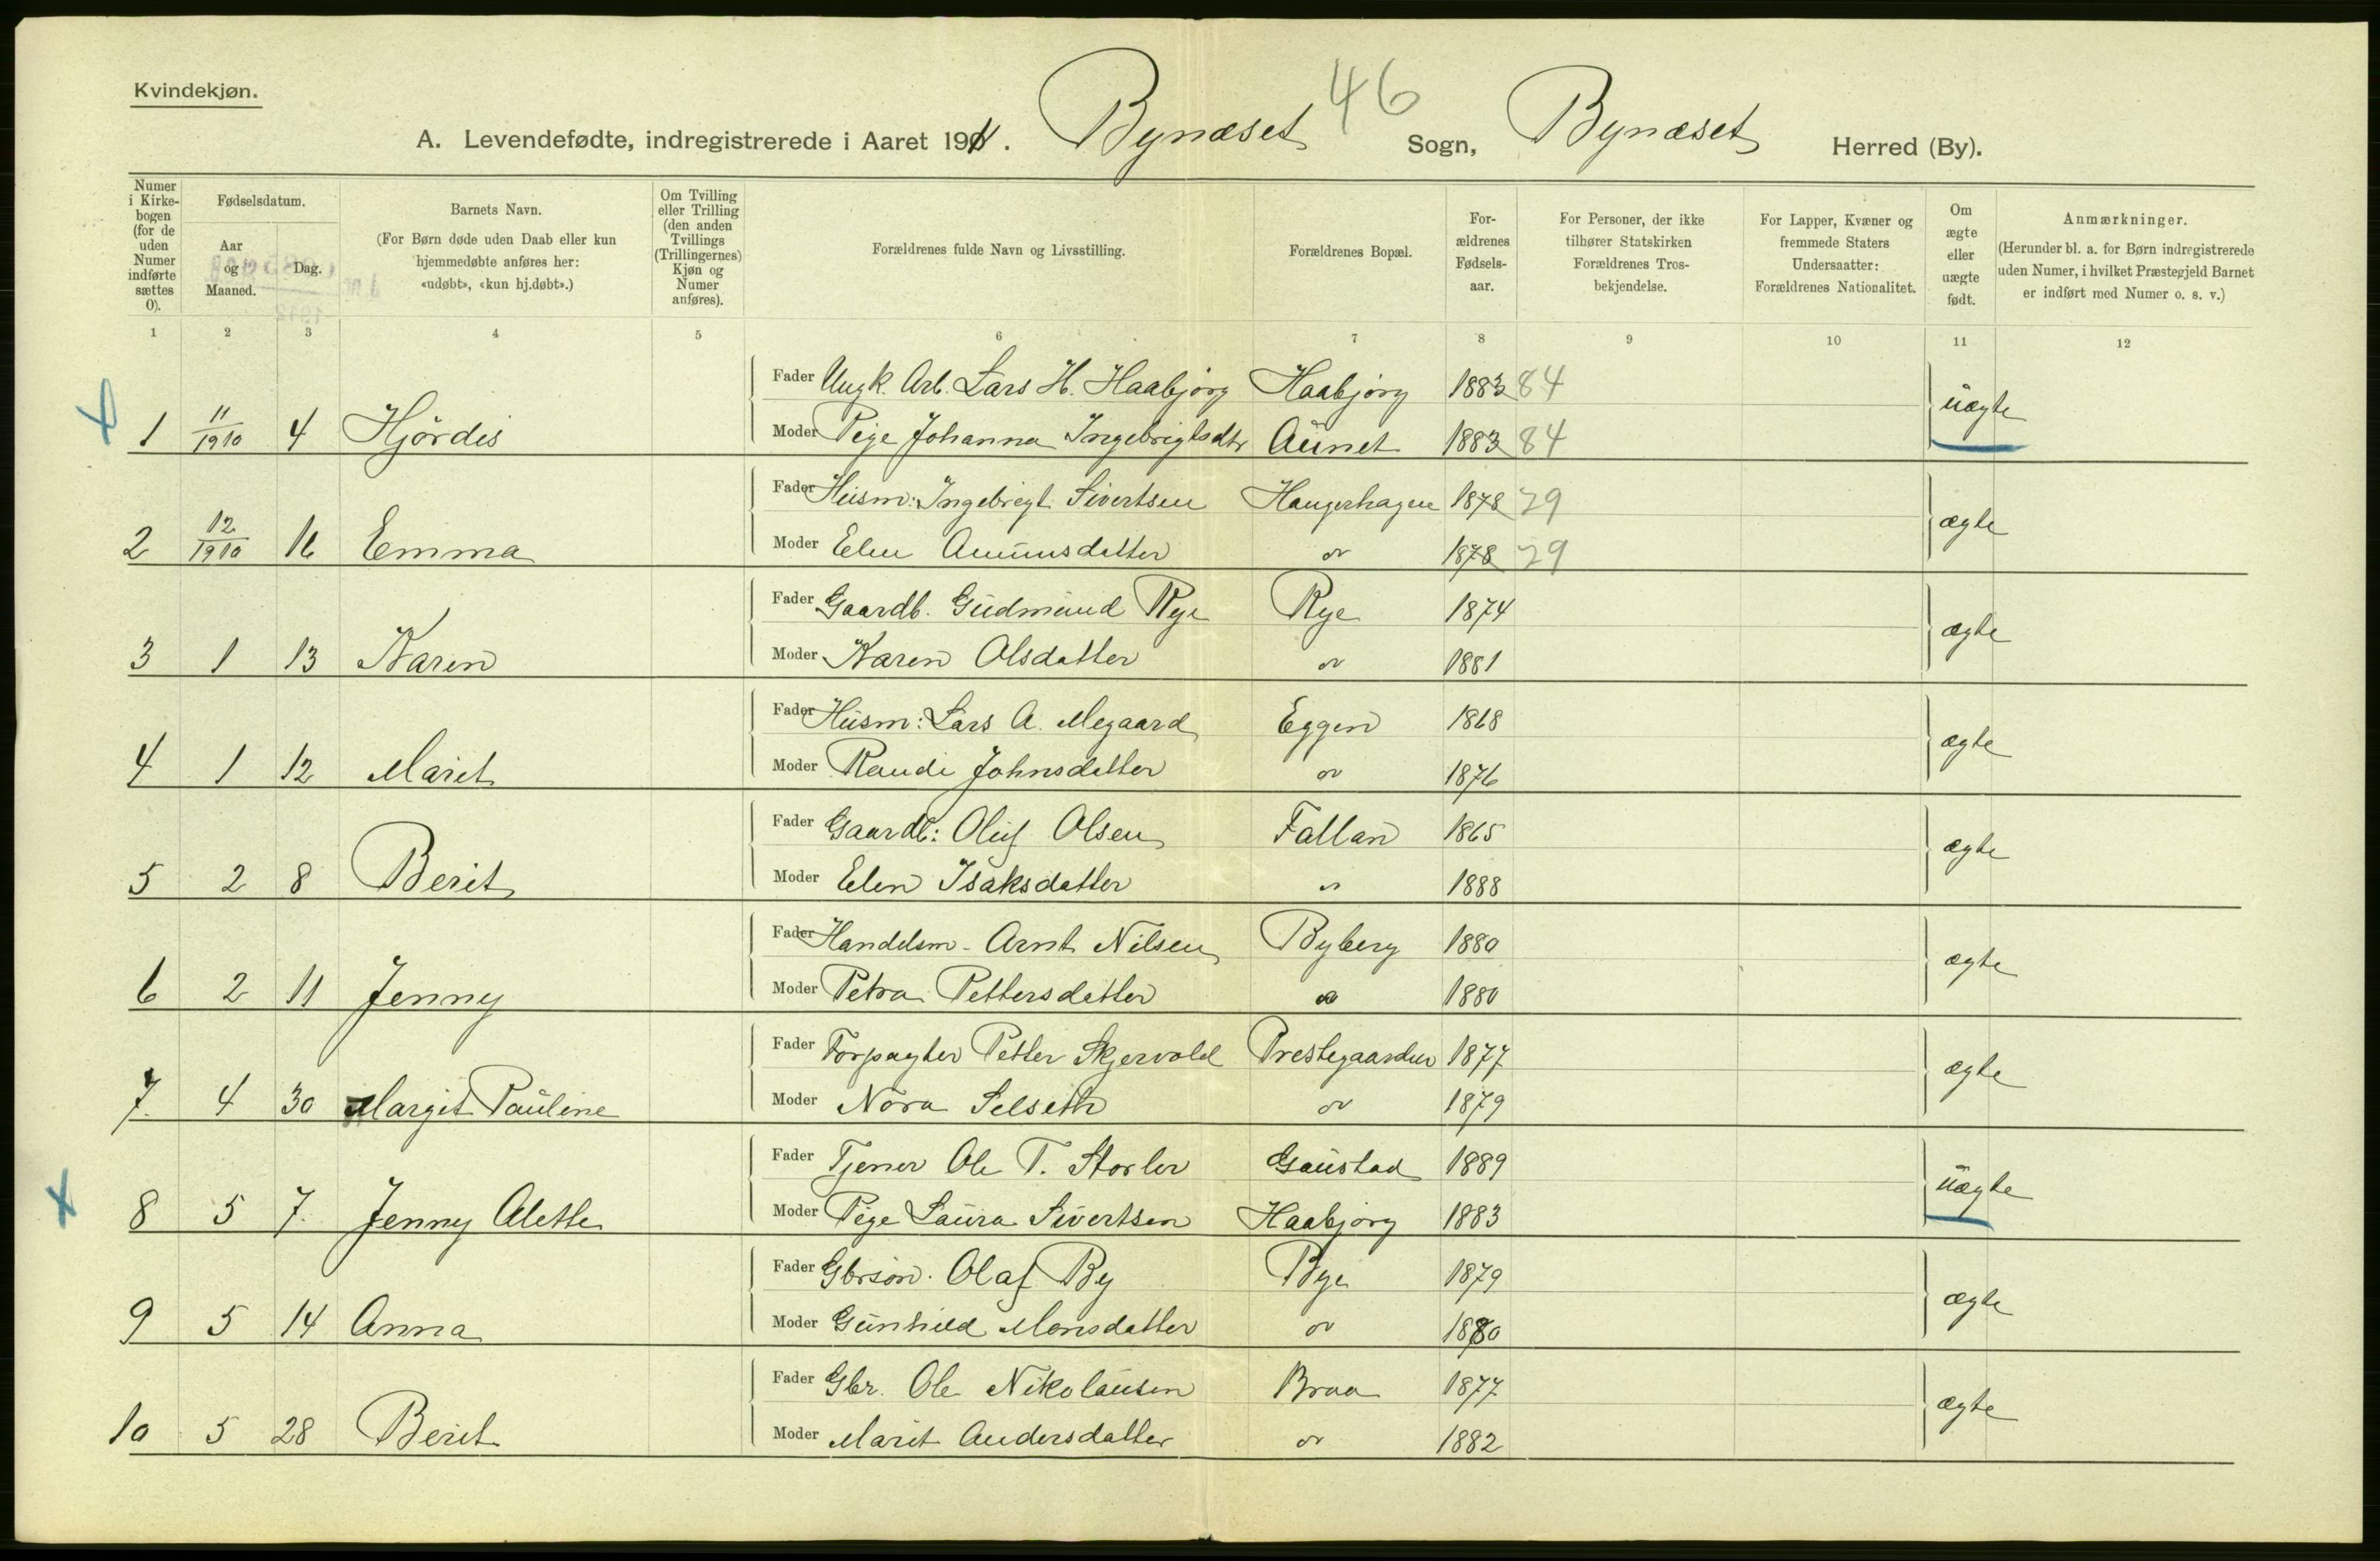 Kvindekjøn.
46
A. Levendefødte, indregistrerede i Aaret 1911. Bynæset Sogn, Bynæset Herred (By).
Numer i Kirkebogen (for de uden Numer indførte sættes 0).
Fødselsdatum.
Aar og Maaned.
Dag.
Barnets Navn.
(For Børn døde uden Daab eller kun hjemmedøbte anføres her: «udøbt», «kun hj.døbt».)
Om Tvilling eller Trilling (den anden Tvillings (Trillingernes) Kjøn og Numer anføres).
Forældrenes fulde Navn og Livsstilling.
Forældrenes Bopæl.
Forældrenes Fødselsaar.
For Personer, der ikke tilhører Statskirken Forældrenes Trosbekjendelse.
For Lapper, Kvæner og fremmede Staters Undersaatter: Forældrenes Nationalitet.
Om ægte eller uægte født.
Anmærkninger.
(Herunder bl. a. for Børn indregistrerede uden Numer, i hvilket Præstegjeld Barnet er indført med Numer o. s. v.)
1 2 3 4 5 6 7 8 9 10 11 12
Fader Ungk. Arb. Lars H. Haabjørg Haabjørg 1883 84
1 11/1910 4 Hjördis Moder Pige Johanna Ingebrigtsdtr Aunet 1883 84 uægte
Fader Husm: Ingebrigt Sivertsen Haugerhagen 1878 79
2 12/1910 16 Emma Moder Elen 1878 79 ægte
Fader Gaardb. Gudmund Rye Rye 1874
3 1 13 Karen Moder Karen Olsdatter " 1881 ægte
Fader Husm: Lars A. Megaard Eggen 1868
4 1 12 Marit Moder Randi Johnsdatter " 1876 ægte
Fader Gaardb: Oluf Olsen Fallan 1865
5 2 8 Berit Moder Elen Isaksdatter " 1888 ægte
Fader Handelsm. Arnt Nilsen Byberg 1880
6 2 11 Jenny Moder Petra Pettersdatter " 1880 ægte
Fader Forpagter Petter Skjervold Prestegaarden 1877
7. 4 30 Margit Pauline Moder Nora Selseth " 1879 ægte
Fader Tjener Ole T. Storler Gaustad 1889
8 5 7. Jenny Alette Moder Pige Laura Sivertsen Haabjørg 1883 uægte
Fader Gbrsøn. Olaf By Bye 1879
9 5 14 Anna Moder Gunhild Monsdatter " 1880 ægte
Fader Gbr. Ole Nikolausen Braa 1877
10 5 28 Berit Moder Marit Andersdatter " 1882 ægte